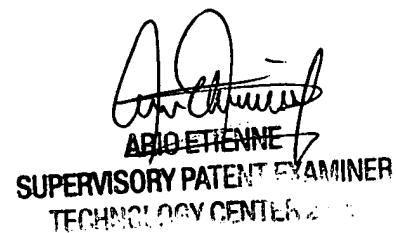 ARIO ETIENNE
SUPERVISORY PATENT EXAMINER
TECHNOLOGY CENTER